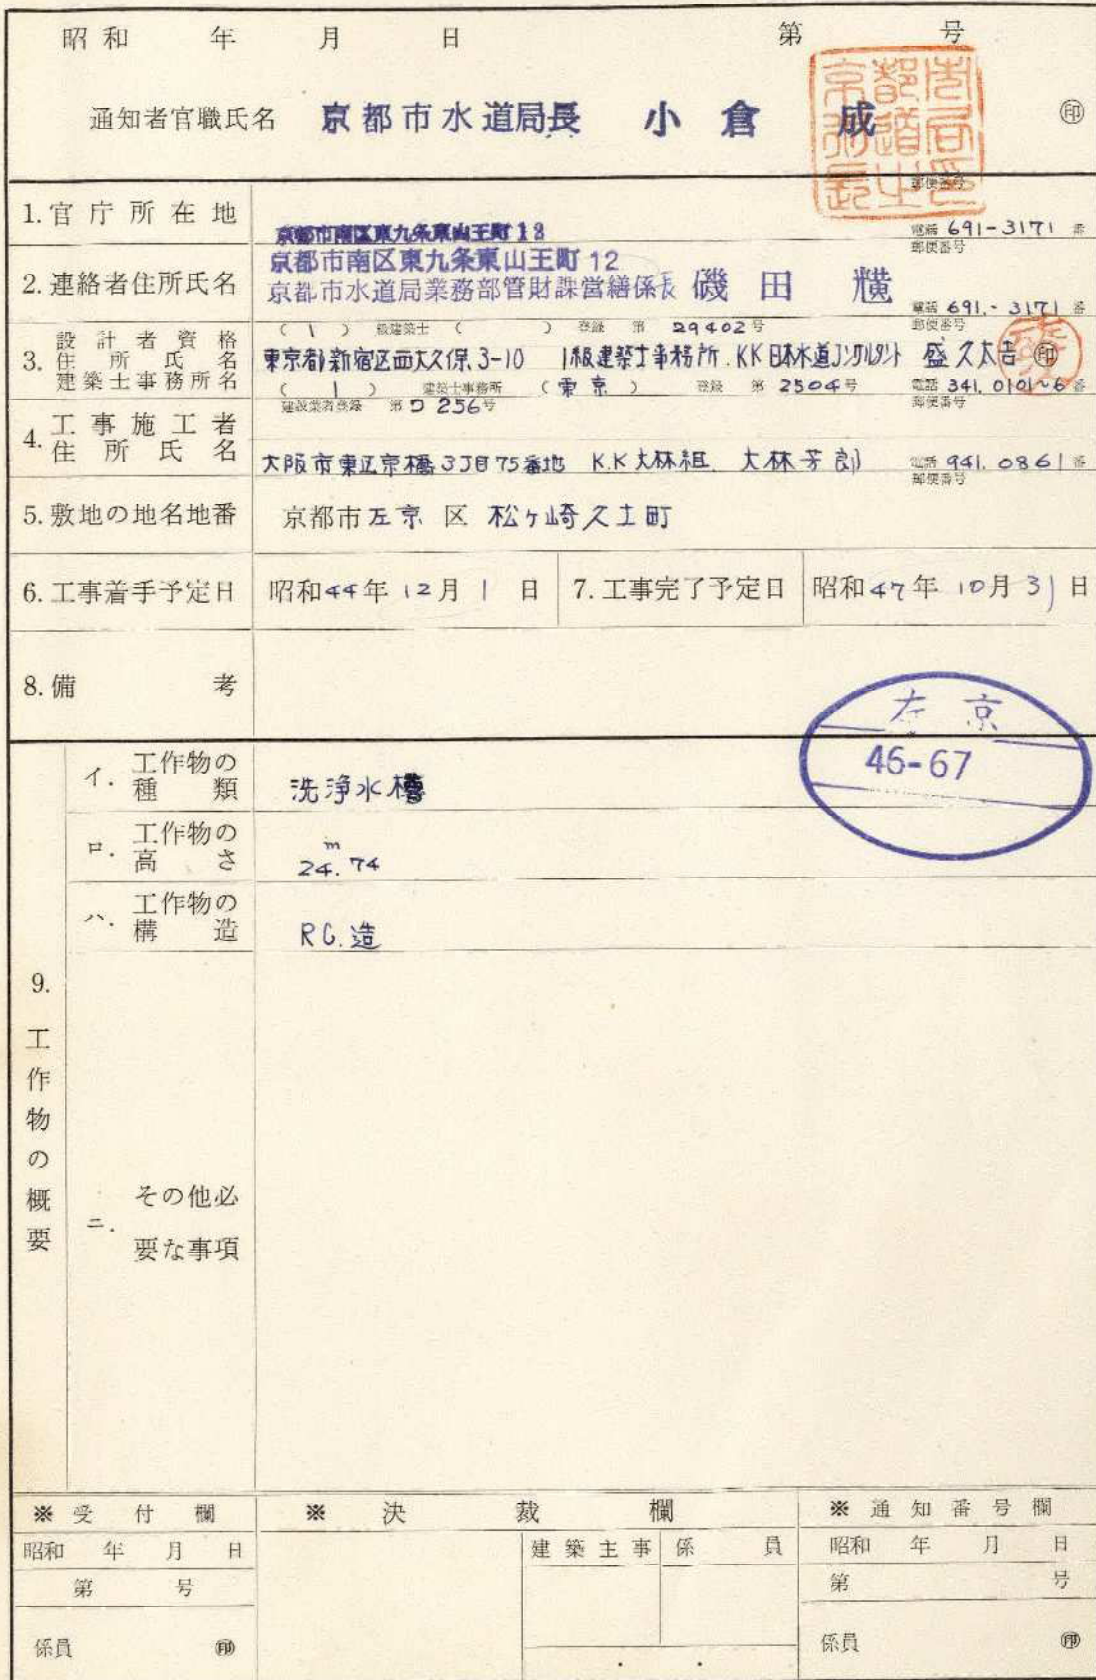 昭和 年 月 日 第 号
通知者官職氏名 京都市水道局長 小倉 成 ㊞
郵便番号
1.官庁所在地 京都市南区東九条東山王町12 電話 691-3171 番
郵便番号
2.連絡者住所氏名 京都市南区東九条東山王町12
京都市水道局業務部管財課営繕係長 磯田 電話 691-3171 番
3. 設計者資格 住所氏名 建築士事務所名
( 1 ) 級建築士 ( ) 登録 第 29402号 郵便番号
東京都新宿区西大久保3-10 1級建築士事務所.KK日本水道コンサルタント 盛久太吉 ㊞
( 1 ) 建築士事務所 (東京) 登録 第 2504号 電話 341.0101~6 番
建設業者登録 第 256号 郵便番号
4. 工事施工者 住所氏名
大阪市東区京橋3丁目75番地 K.K大林組 大林芳郎 電話 941.0861 番
郵便番号
5.敷地の地名地番 京都市左京区 松ヶ崎久土町
6.工事着手予定日 昭和44年12月1日 7.工事完了予定日 昭和47年10月31日
8.備考
左京
46-67
9.工作物の概要
イ. 工作物の種類 洗浄水槽
ロ. 工作物の高さ 24.74 m
ハ. 工作物の構造 RC.造
ニ. その他必要な事項
※受付欄 ※決裁欄 ※通知番号欄
昭和 年 月 日 建築主事 係員 昭和 年 月 日
第 号 第 号
係員 ㊞ 係員 ㊞